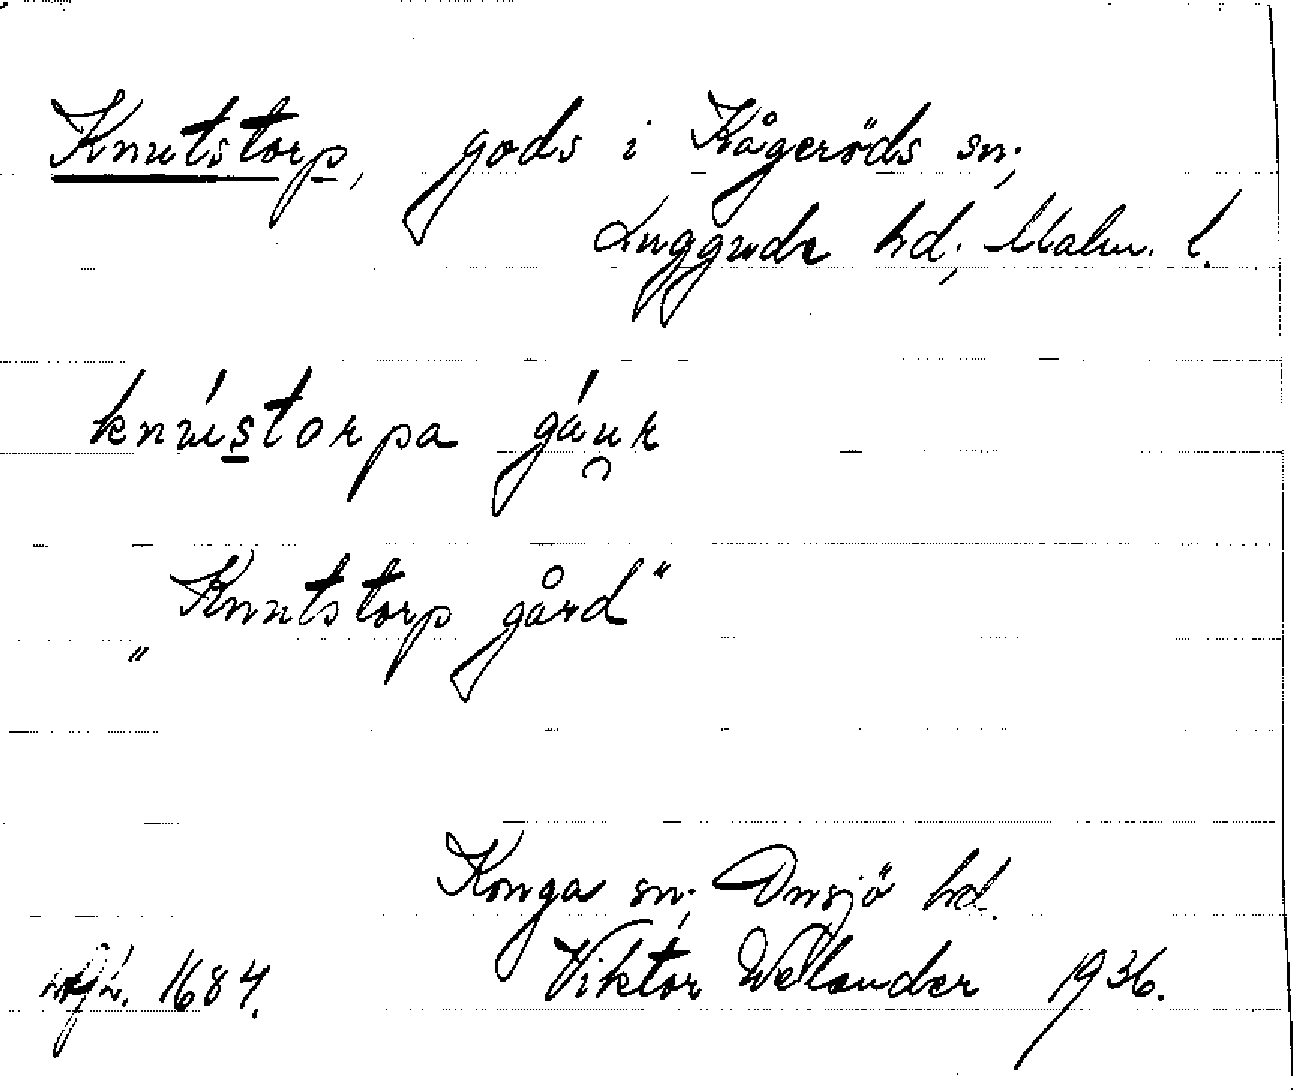 Knutstorp, gods i Kågeröds sn;
Luggude hd; Malm. l.
knústorpa gáu̯r
"Knutstorp gård"
Konga sn; Onsjö hd.
1684. Viktor Wellander 1936.